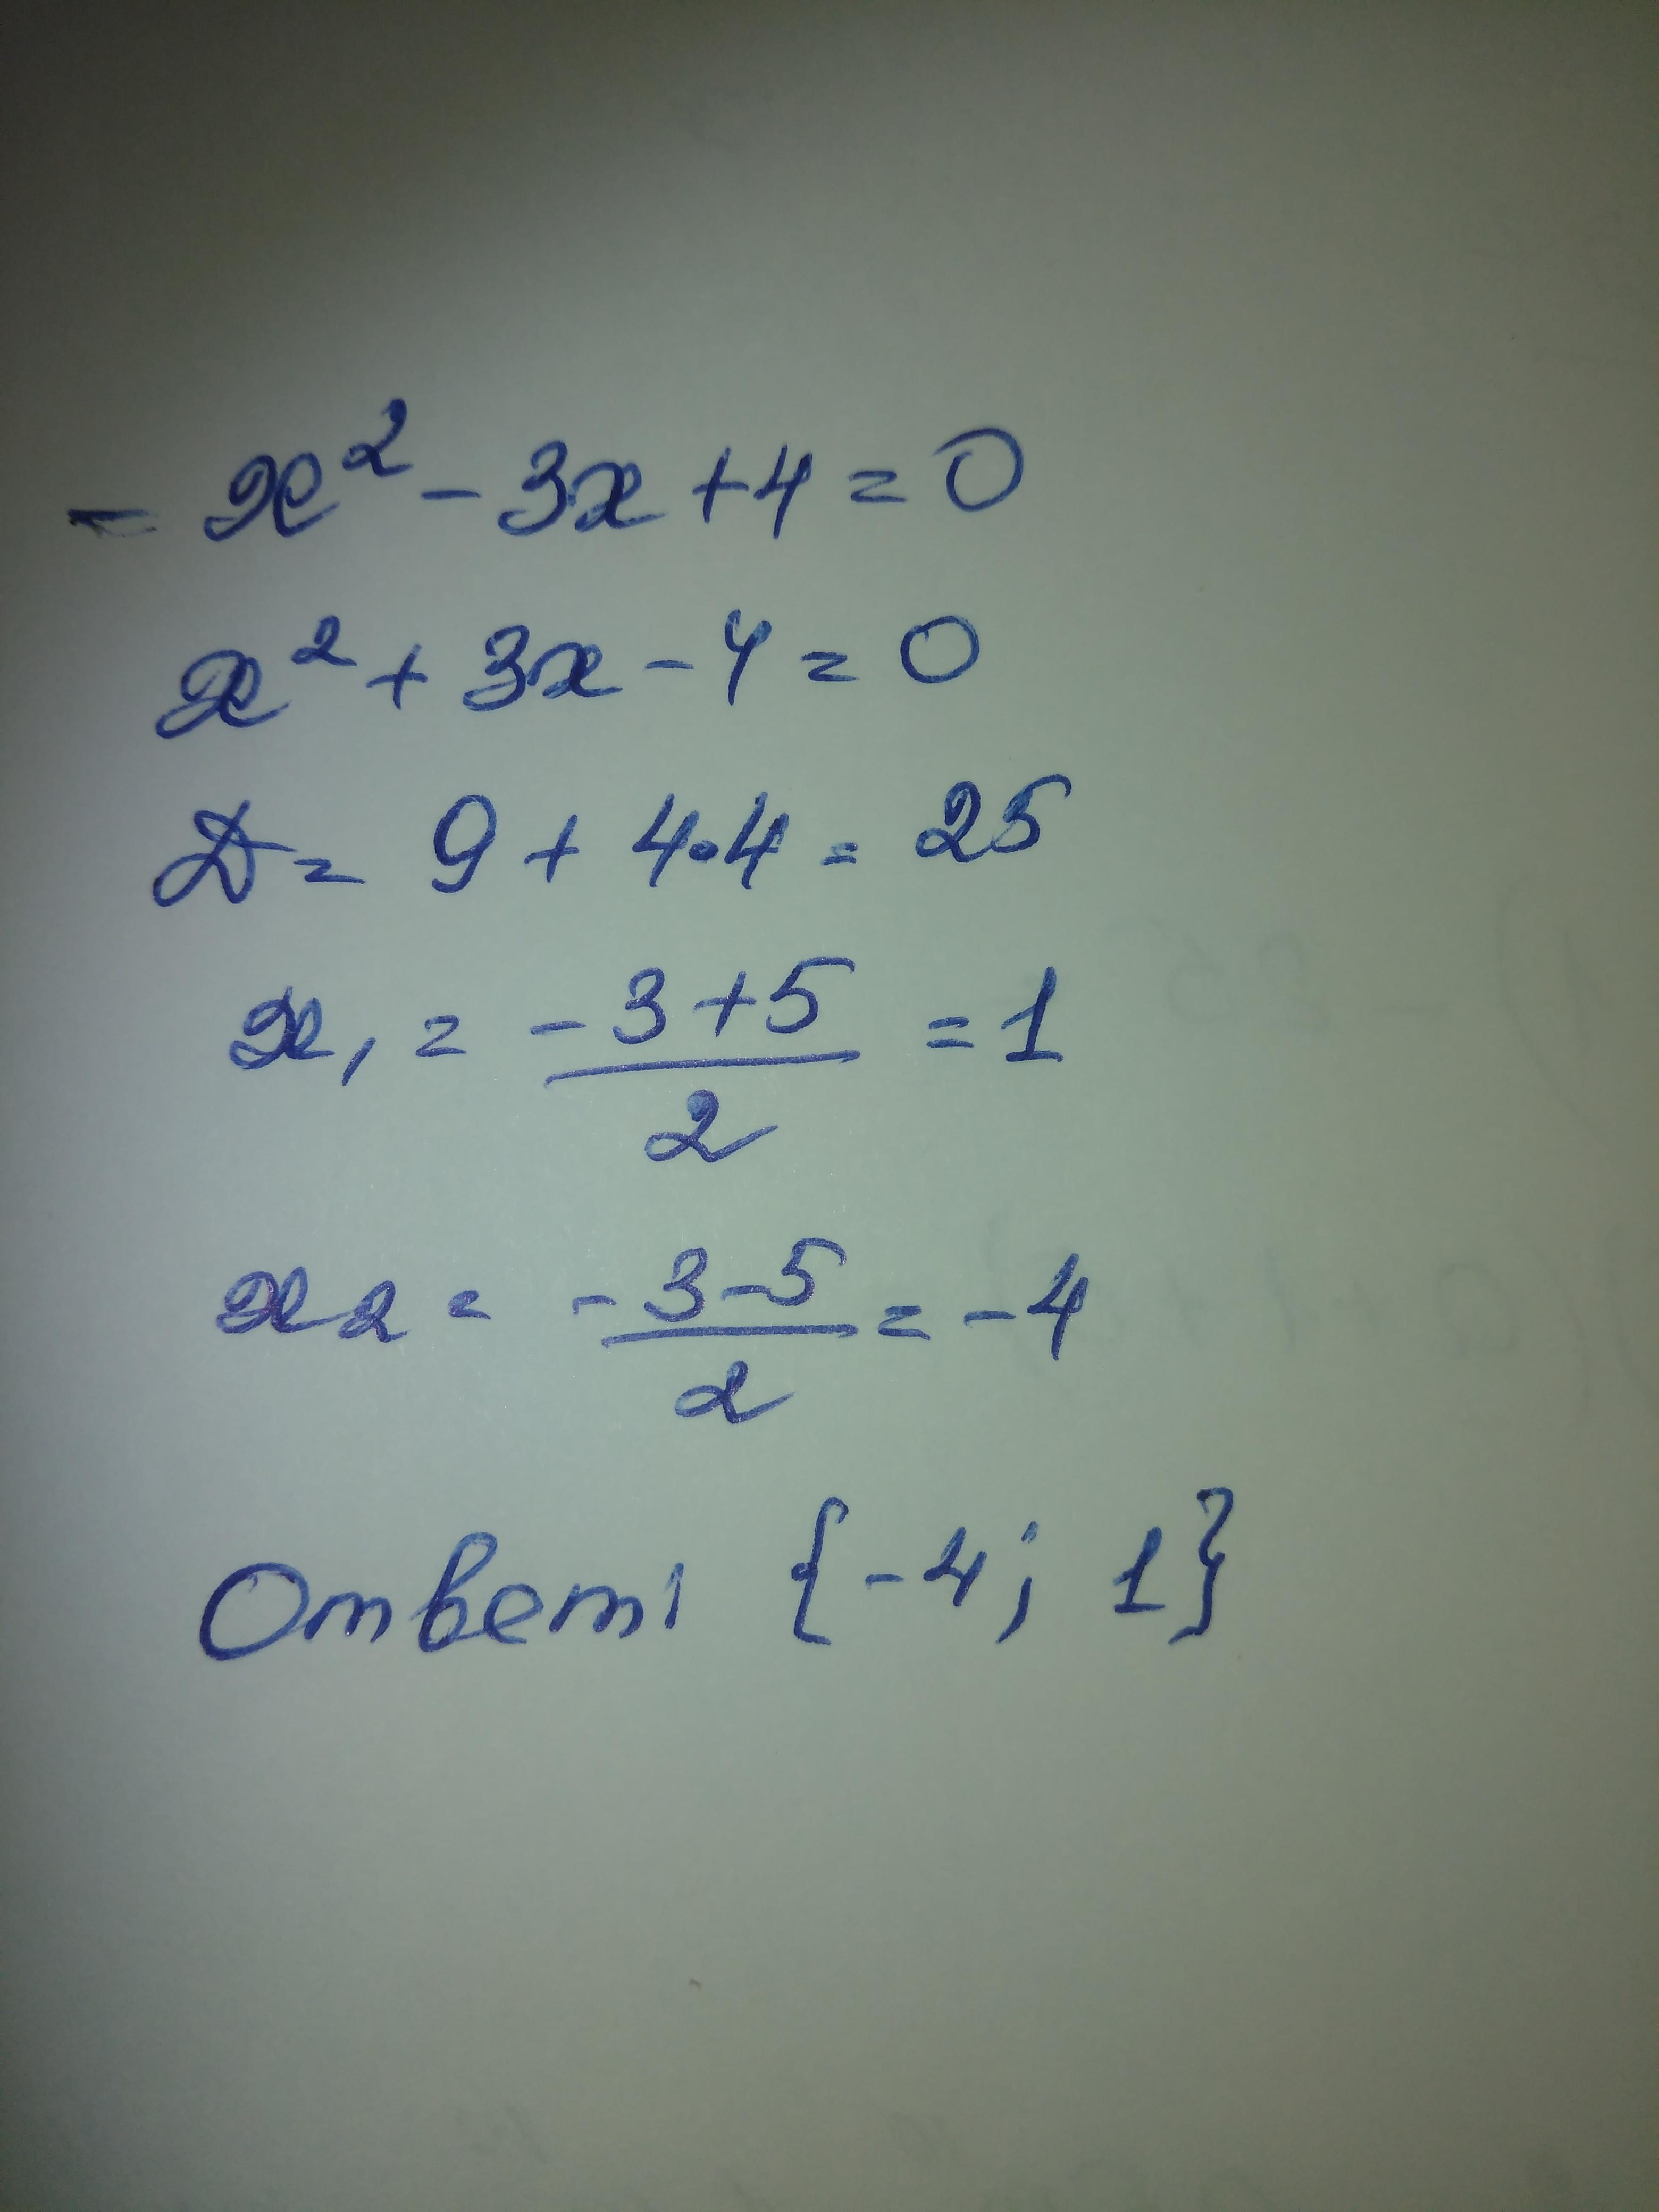 - x² - 3x + 4 = 0
x² + 3x - 4 = 0
D = 9 + 4·4 = 25
x₁ = (-3+5)/2 = 1
x₂ = (-3-5)/2 = -4
Ответ: {-4; 1}